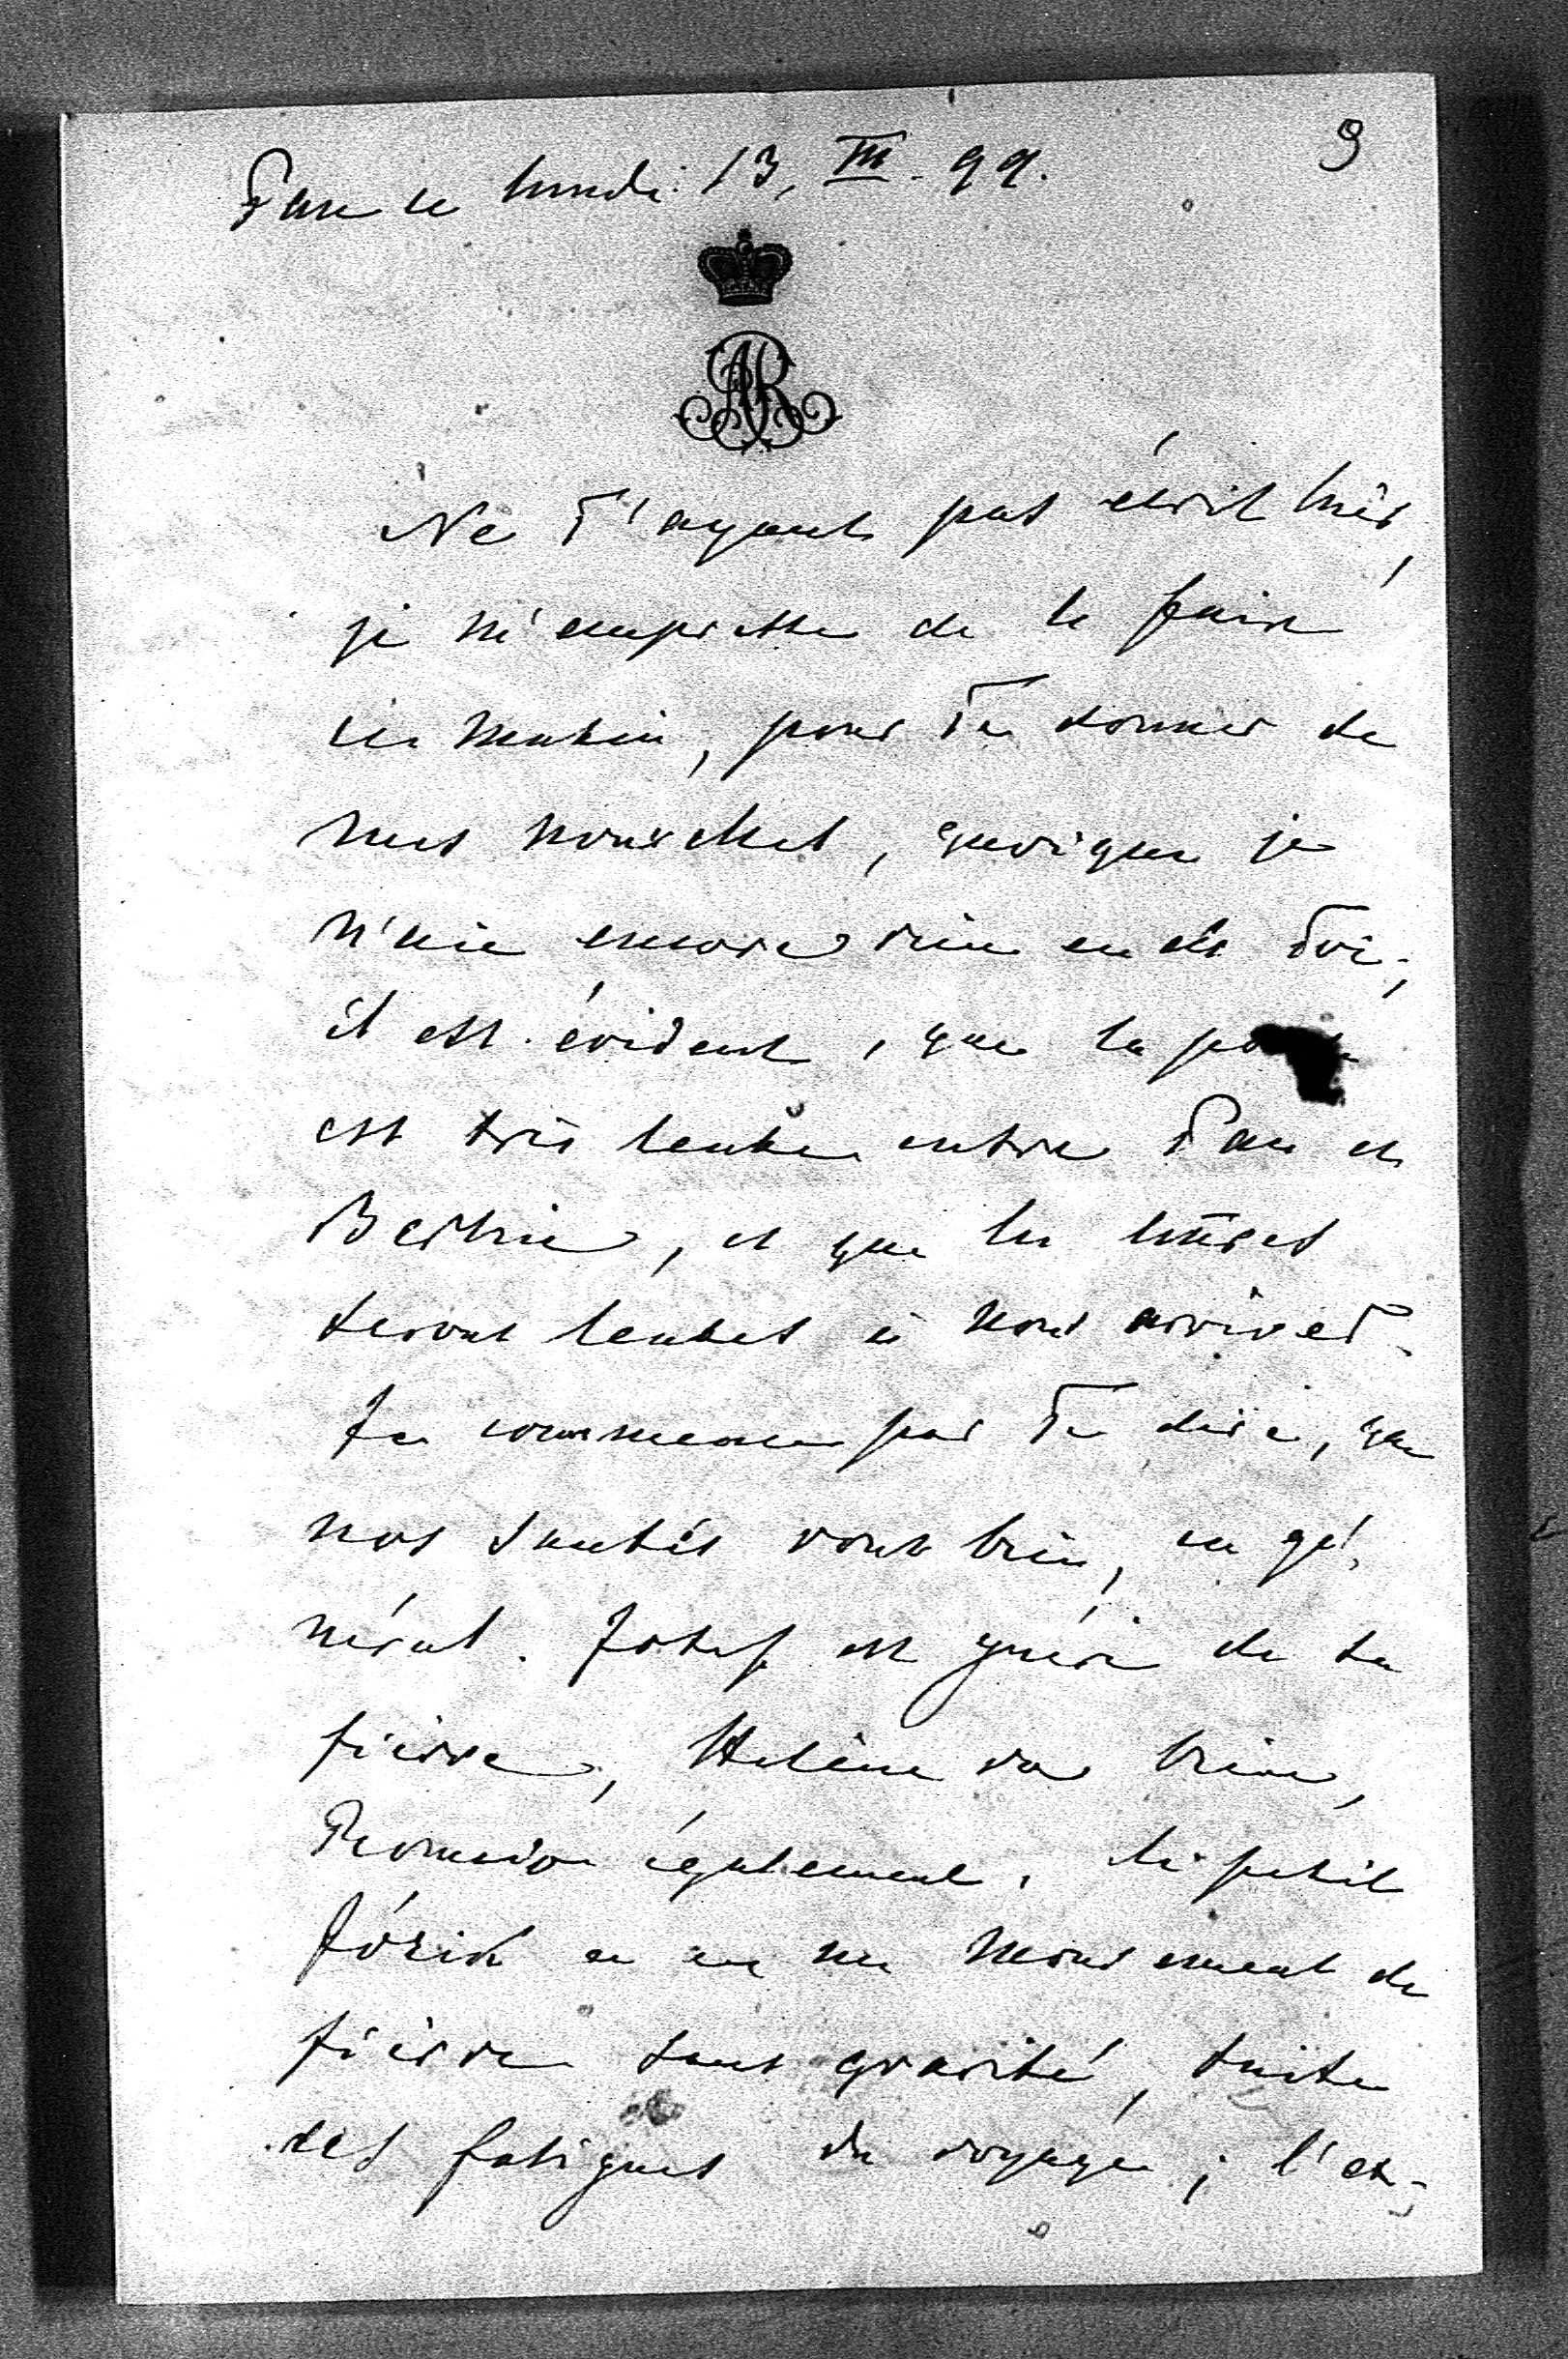 Pau le lundi 13, III. 99.
9
AR
Ne T'ayant pas écrit hier,
je m'empresse de le faire
ce matin, pour Te donner de
nos nouvelles, quoique je
n'aie encore rien eu de Toi;
il est évident, que la poste
est très lente entre Pau et
Berlin, et que les lettres
seront lentes à nous arriver.
Je commence par Te dire, que
nos santés vont bien, en gé-
néral. Josef est guéri de sa
fièvre, Hélène va bien,
également. Le petit
Józio a eu un mouvement de
fièvre sans gravité, suite
des fatigues du voyage; l'ex-